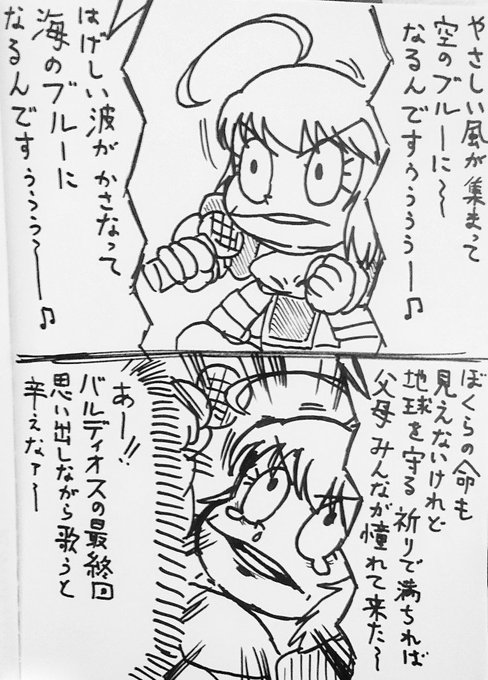 やさしい風が集まって
空のブルーに〜
なるんですぅぅぅぅー♪
はげしい波がかさなって
海のブルーに
なるんですぅぅぅぅ〜ー♪
ぼくらの命も
見えないけれど
地球を守る祈りで満ちれば
父母みんなが憧れて来た〜
あー!!
バルディオスの最終回
思い出しながら歌うと
辛ぇなァ〜